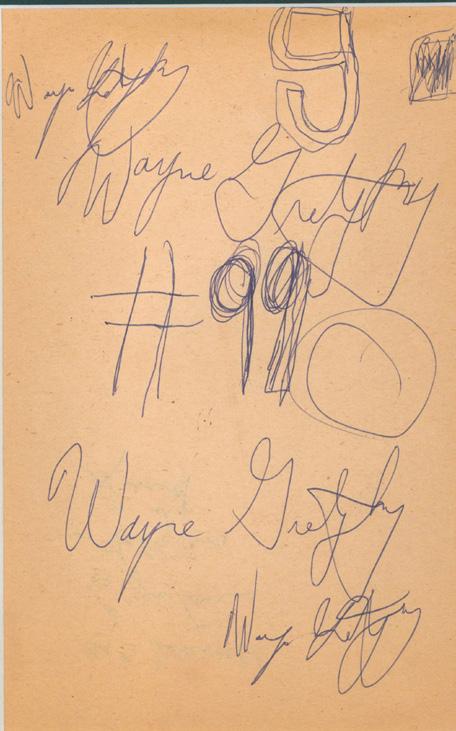 9
Wayne Gretzky
Wayne Gretzky
#99
Wayne Gretzky
Wayne Gretzky